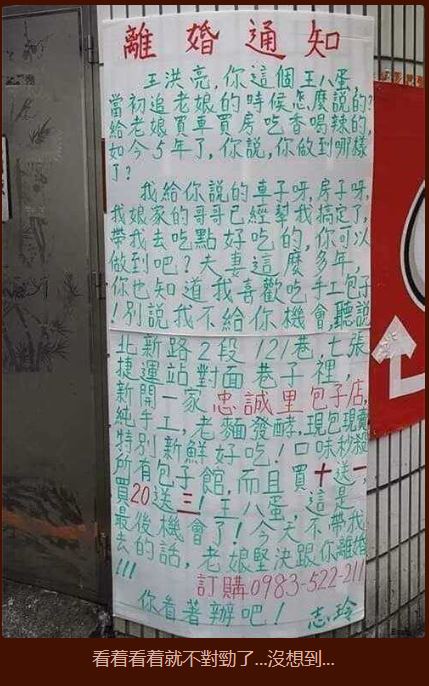 離婚通知
王洪亮,你這個王八蛋,
當初追老娘的時候怎麼說的?
給老娘買車買房吃香喝辣的,
如今5年了,你說,你做到哪樣
了?
我給你說的車子呀,房子呀,
我娘家的哥哥已經幫我搞定了,
帶我去吃點好吃的,你可以
做到吧?夫妻這麼多年,
你也知道我喜歡吃手工包子
!別說我不給你機會,聽說
北新路2段121巷,七張
捷運站對面巷子裡,
新開一家忠誠里包子店,
純手工,老麵發酵,現包現賣
特別新鮮好吃!口味秒殺
所有包子館,而且買十送一,
買20送三!王八蛋,這是
最後機會了!今天不帶我
去的話,老娘堅決跟你離婚
!!!
訂購0983-522-211
你看著辦吧! 志玲
看着看着就不對勁了...沒想到...